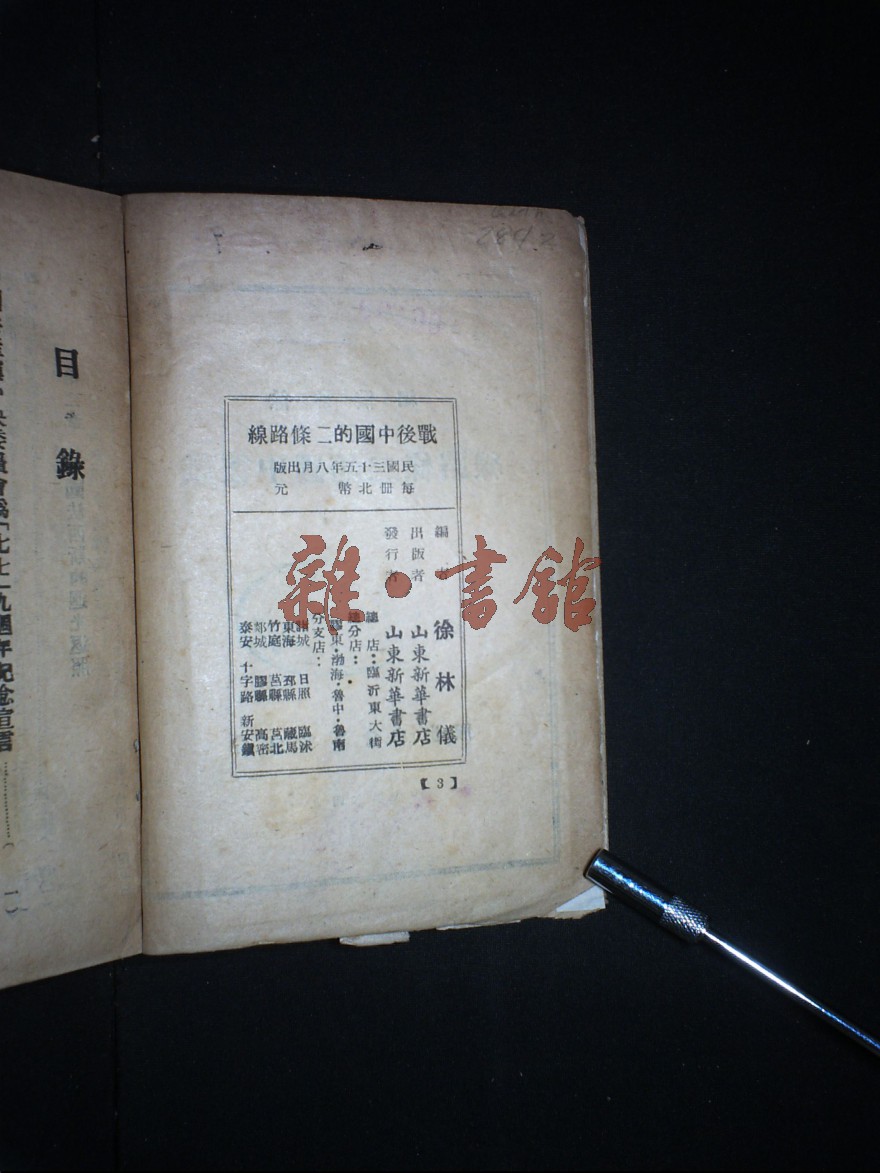 戰後中國的二條路線
民國三十五年八月出版
每冊北幣 元
編 徐林儀
出版者 山東新華書店
發行者 山東新華書店
總店：臨沂東大街
分店：
膠東·渤海·魯中·魯南
分支店：
諸城 日照 臨沭
東海 邳縣 藏馬
竹庭 莒縣 莒北
郯城 膠縣 高密
泰安 十字路 新安鎮
【3】
目錄
委員會為「七七」九週年紀念宣言
一
雜·書館